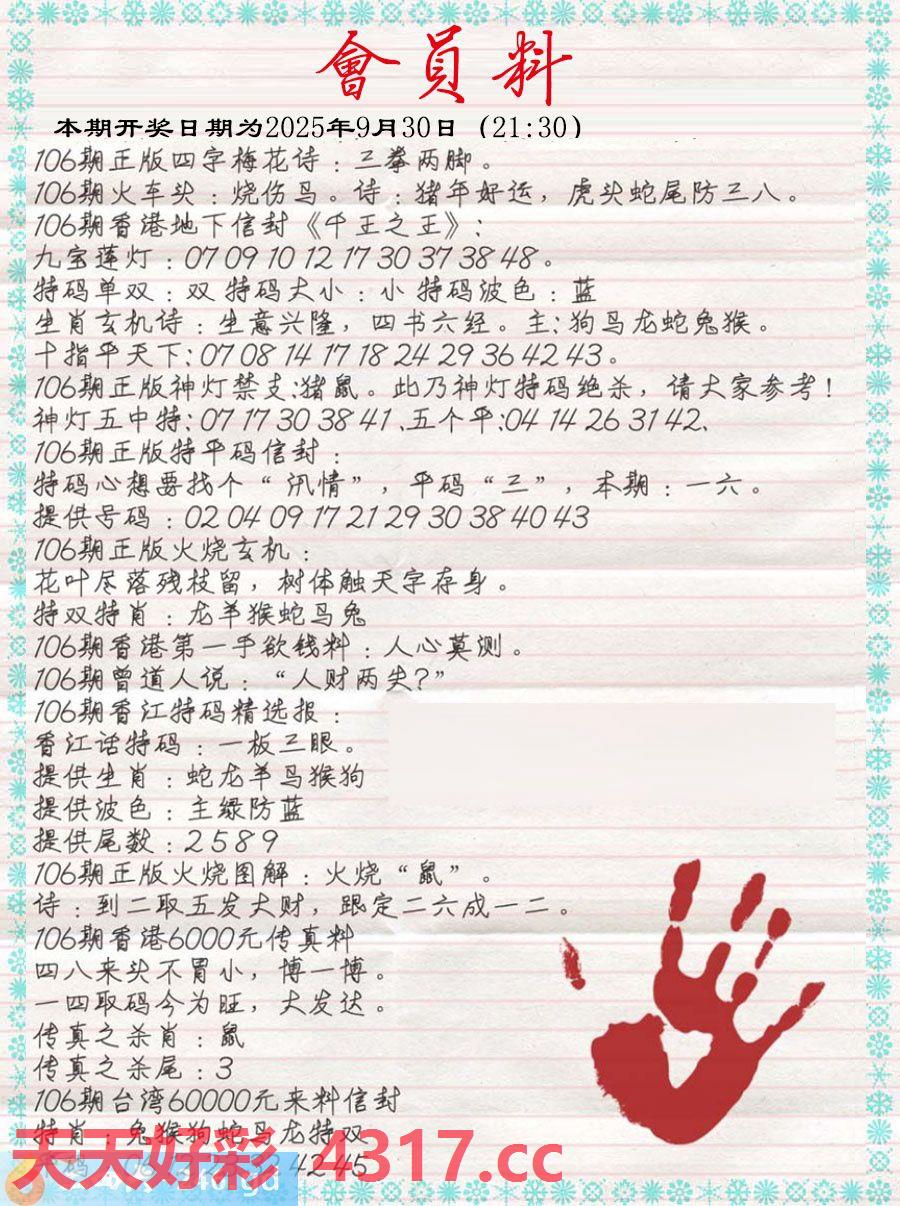 會員料
本期开奖日期为2025年9月30日（21:30）
106期正版四字梅花诗：三拳两脚。
106期火车头：烧伤鸟。诗：猪年好运，虎头蛇尾防三八。
106期香港地下信封《千王之王》：
九宝莲灯：07 09 10 12 17 30 37 38 48。
特码单双：双 特码大小：小 特码波色：蓝
生肖玄机诗：生意兴隆，四书六经。主：狗马龙蛇兔猴。
十指平天下：07 08 14 17 18 24 29 36 42 43。
106期正版神灯禁支：猪鼠。此乃神灯特码绝杀，请大家参考！
神灯五中特：07 17 30 38 41、五个平：04 14 26 31 42、
106期正版特平码信封：
特码心想要找个“汛情”，平码“三”，本期：一六。
提供号码：02 04 09 17 21 29 30 38 40 43
106期正版火烧玄机：
花叶尽落残枝留，树体触天字存身。
特双特肖：龙羊猴蛇马兔
106期香港第一手欲钱料：人心莫测。
106期曾道人说：“人财两失?”
106期香江特码精选报：
香江话特码：一板三眼。
提供生肖：蛇龙羊马猴狗
提供波色：主绿防蓝
提供尾数：2 5 8 9
106期正版火烧图解：火烧“鼠”。
诗：到二取五发大财，跟定二六成一二。
106期香港6000元传真料
四八来头不胃小，博一博。
一四取码今为旺，大发达。
传真之杀肖：鼠
传真之杀尾：3
106期台湾60000元来料信封
特肖：兔猴狗蛇马龙特双
42 45
天天好彩 4317.cc